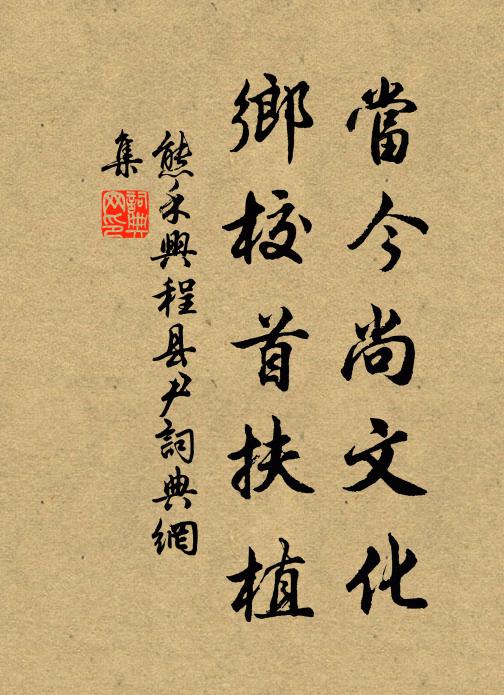 當今尚文化
鄉校首扶植
熊禾興程县尹詞典網
集
詞典
网印